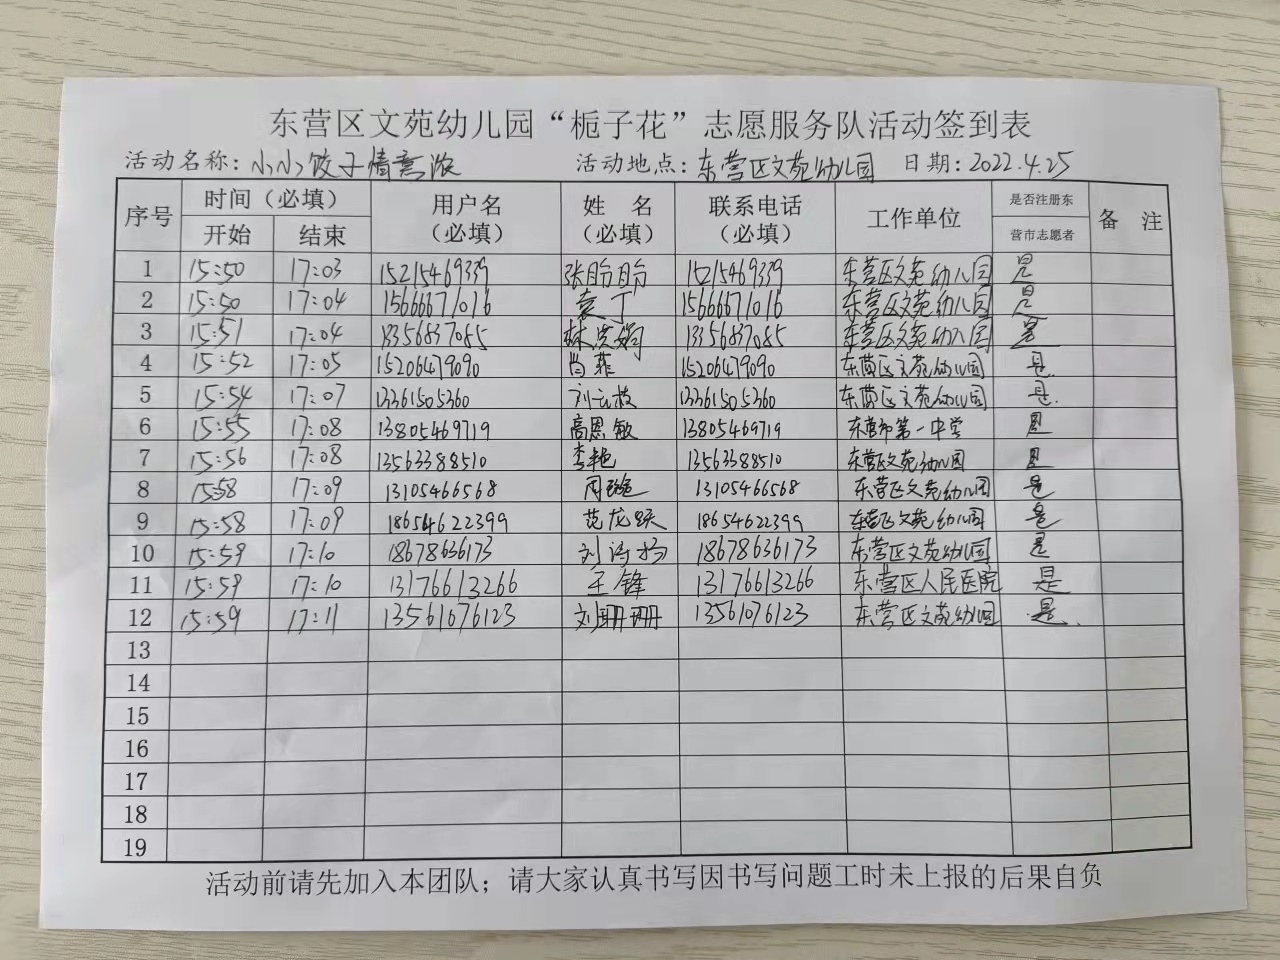 东营区文苑幼儿园“栀子花”志愿服务队活动签到表
活动名称：小小饺子情意浓 活动地点：东营区文苑幼儿园 日期：2022.4.25
序号 时间（必填） 开始 结束 用户名（必填） 姓 名（必填） 联系电话（必填） 工作单位 是否注册东营市志愿者 备 注
1 15:50 17:03 15215469339 张盼盼 15215469339 东营区文苑幼儿园 是
2 15:50 17:04 15666671016 袁丁 15666671016 东营区文苑幼儿园 是
3 15:51 17:04 13356837085 林 娟 13356837085 东营区文苑幼儿园 是
4 15:52 17:05 15206479090 尚菲 15206479090 东营区文苑幼儿园 是
5 15:54 17:07 13361505360 刘云枝 13361505360 东营区文苑幼儿园 是
6 15:55 17:08 13805469719 高恩敏 13805469719 东营市第一中学 是
7 15:56 17:08 13563388510 李艳 13563388510 东营区文苑幼儿园 是
8 15:58 17:09 13105466568 周 13105466568 东营区文苑幼儿园 是
9 15:58 17:09 18654622399 范龙跃 18654622399 东营区文苑幼儿园 是
10 15:59 17:10 18678636173 刘海扬 18678636173 东营区文苑幼儿园 是
11 15:59 17:10 13176613266 王锋 13176613266 东营区人民医院 是
12 15:59 17:11 13561076123 刘珊珊 13561076123 东营区文苑幼儿园 是
13
14
15
16
17
18
19
活动前请先加入本团队；请大家认真书写因书写问题工时未上报的后果自负